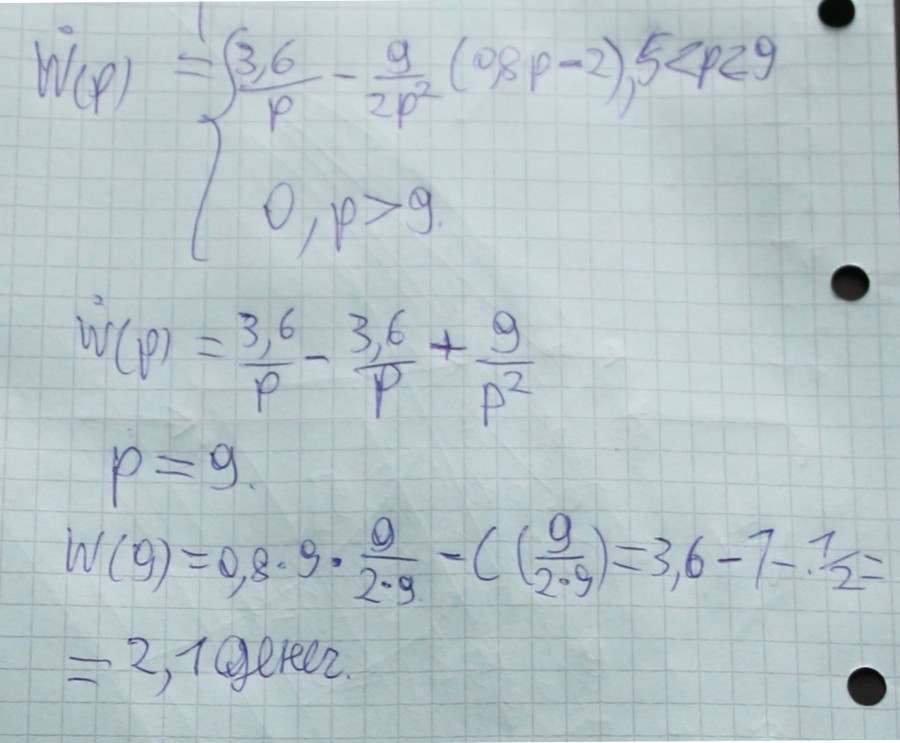 Ẇ(p) = { 3,6/p - 9/2p² (0,8p-2), 5<p<9
0, p>9.
Ẇ(p) = 3,6/p - 3,6/p + 9/p²
p = 9.
W(9) = 0,8·9·9/2·9 - C(9/2·9) = 3,6-1-1/2=
= 2,1 денег.